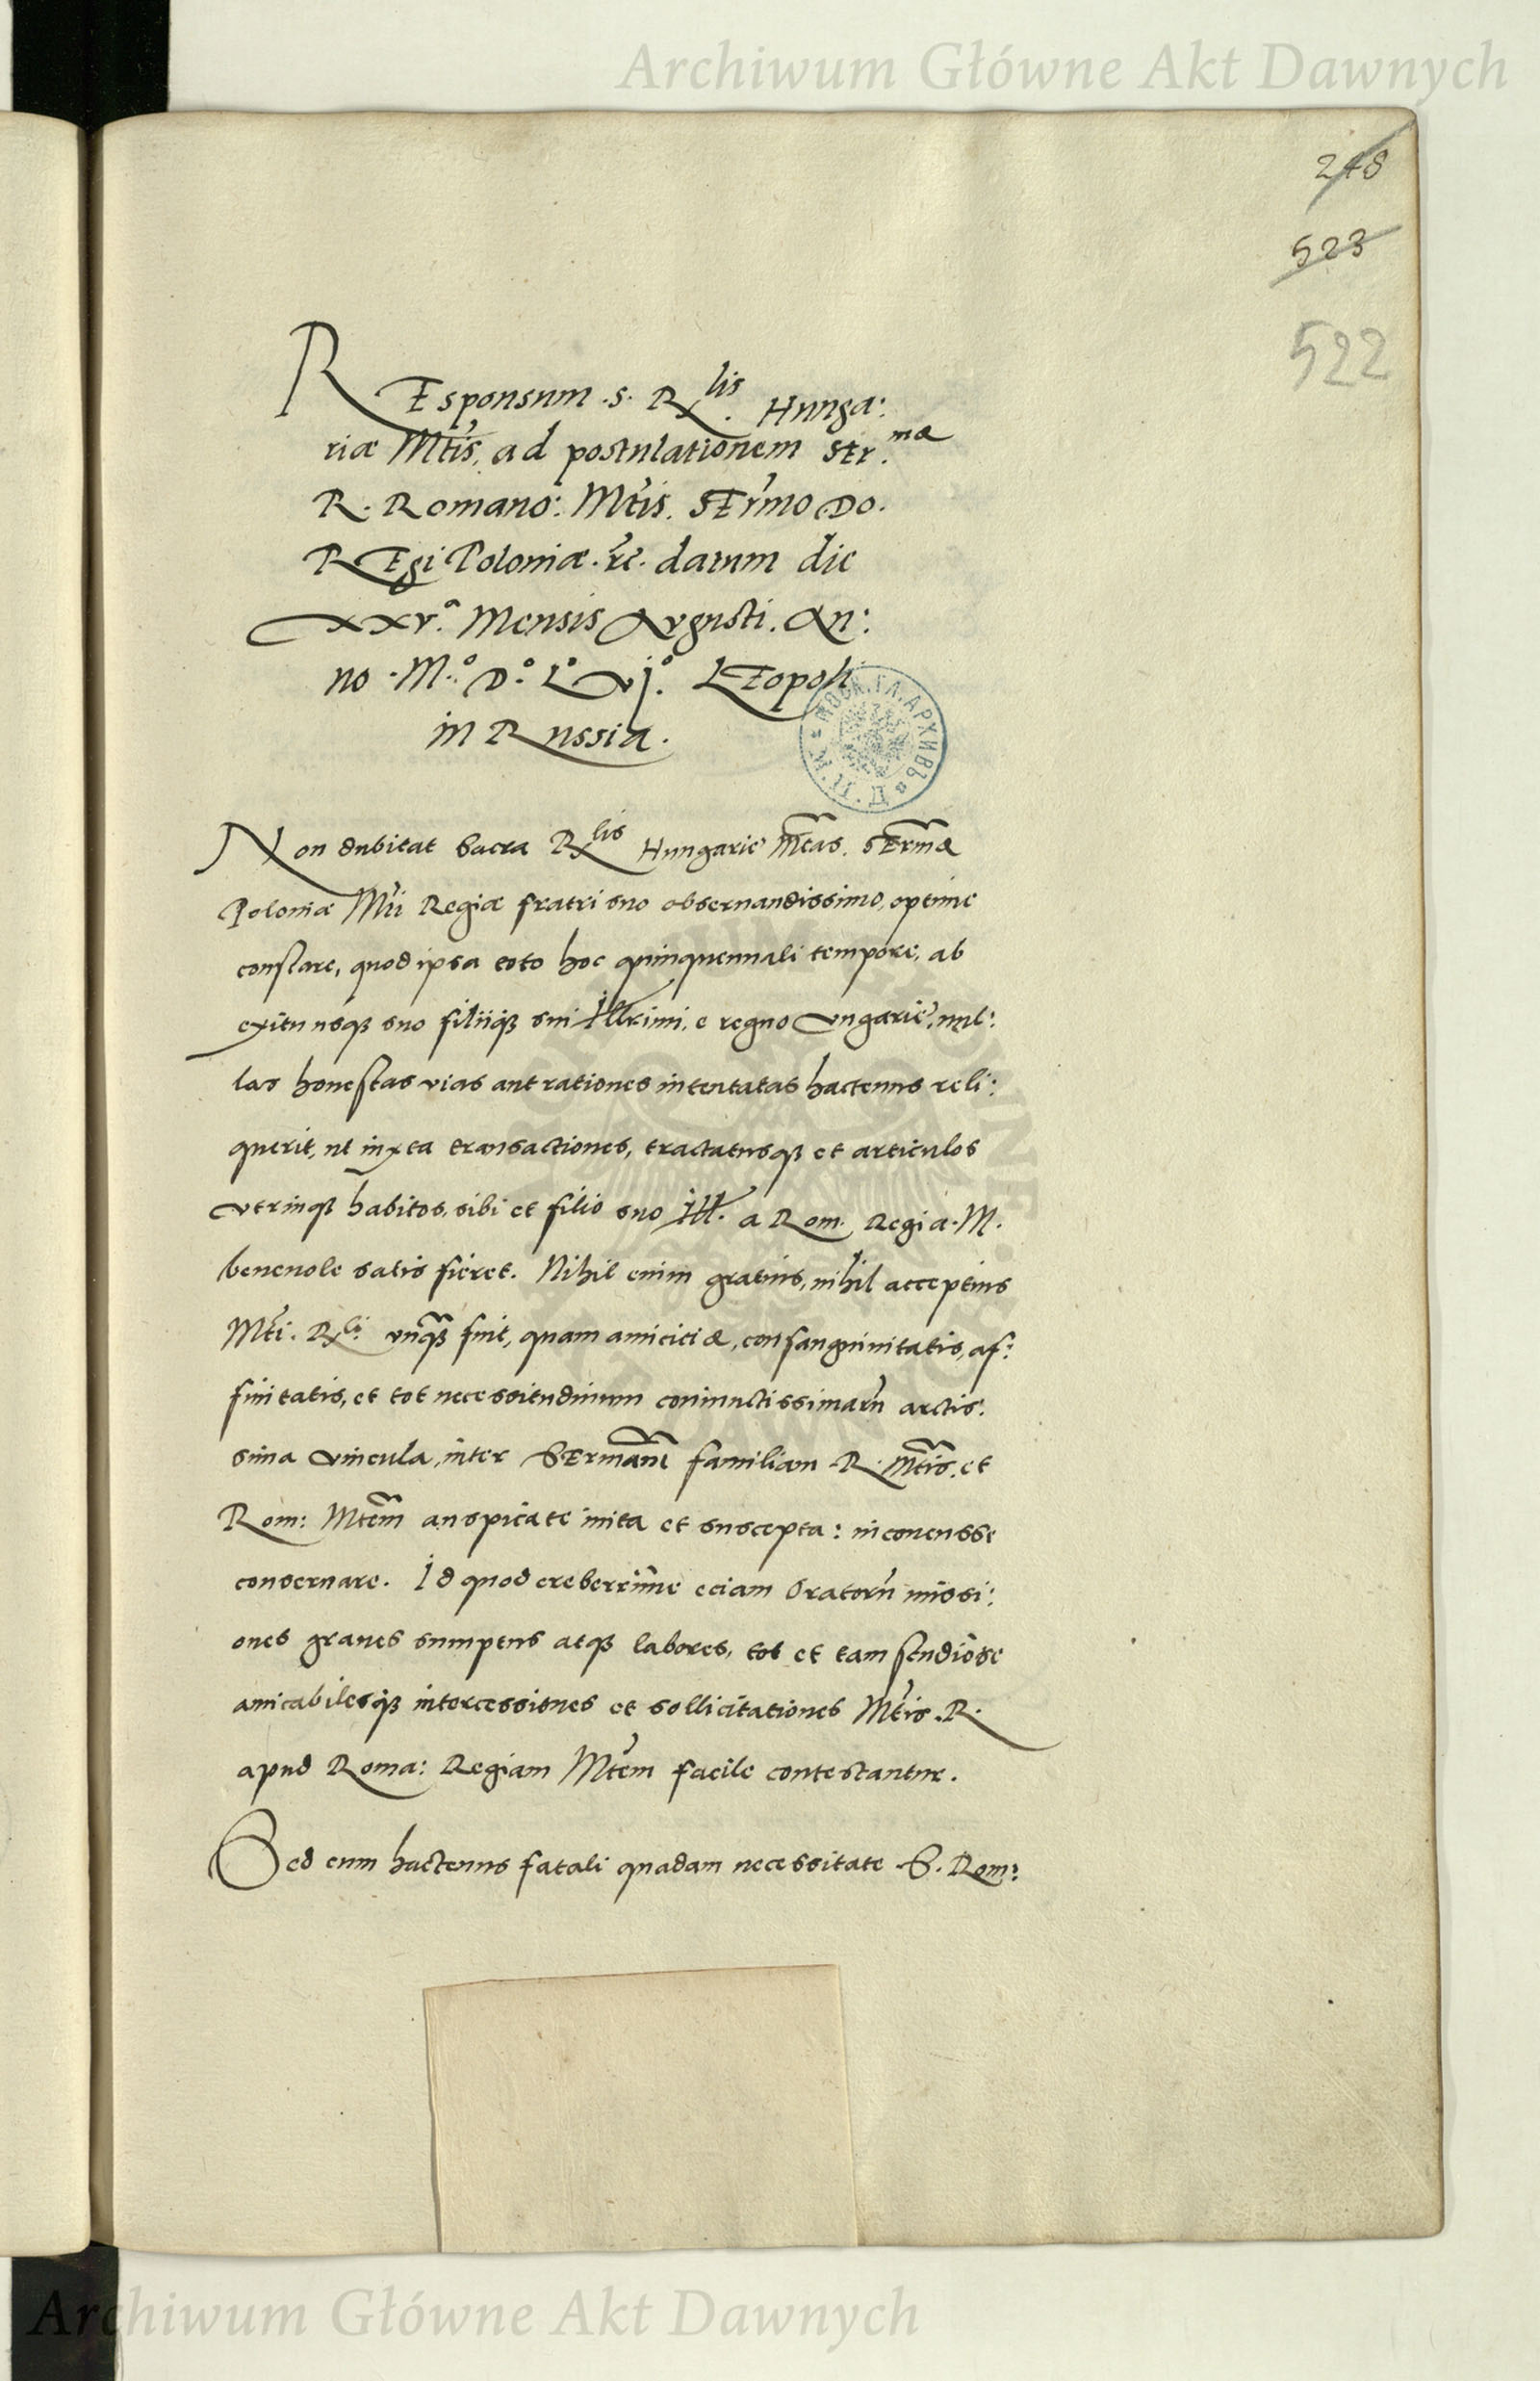 Archiwum Główne Akt Dawnych
248
523
522
REsponsum .S. R.lis Hunga:
riæ Mtis, ad postulationem Ser.mæ
R. Romano: Mtis. SErmo Do.
REgi Poloniæ. &c. datum die
XXV.° Mensis Avgusti. An:
no .M.° D.° L.° vj.° LEopoli
in Russia.
МОСК. ГЛ. АРХИВЪ М.И.Д.
Non dubitat Sacra R.lis Hungarie Mtas. SErmæ
Poloniæ Mti Regiæ fratri suo obseruandissimo, optime
constare, quod ipsa toto hoc quinquennali tempore, ab
exitu usq3 suo filiiq3 sui Illrimi, e regno Vngarie, nul:
las honestas vias aut rationes intentatas hactenus reli:
querit, ut iuxta transactiones, tractatusq3 et articulos
vtrinq3 habitos, sibi et filio suo Ill. a Rom. Regia .M.
beneuole satis fieret. Nihil enim gratius, nihil acceptius
Mti. R.li vnq3 fuit, quam amicitiæ, consanguinitatis, af:
finitatis, et tot necessitudinum coniunctissimaru arctis:
sima vincula, inter SErmam familiam R. Mtis. et
Rom: Mtem auspicate inita et suscepta: inconcusse
conseruare. Id quod creberrime eciam Oratoru missi:
ones graues sumptus atq3 labores, tot et tam studiose
amicabilesq3 intercessiones et sollicitationes Mtis. R.
apud Roma: Regiam Mtem facile contestantur.
Sed cum hactenus fatali quadam necessitate S. Rom:
Archiwum Główne Akt Dawnych